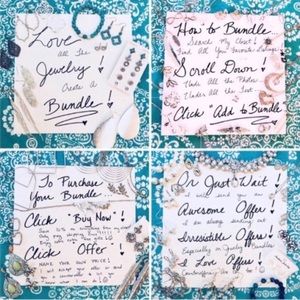 Love
All The
Jewelry!
Create A
Bundle!
How to Bundle...
Search My Closet &
Find All Your Favorite Listings
Scroll Down!
Under All The Photos
Under All the Text...
Click "Add to Bundle"
To Purchase
Your Bundle...
Click "Buy Now"!
Click "Offer"
NAME YOUR OWN PRICE!
Or Just Wait!
I will send you an
Awesome Offer
I am always sending out
Irresistible Offers!
Especially on Jewelry Bundles
I Love Offers!